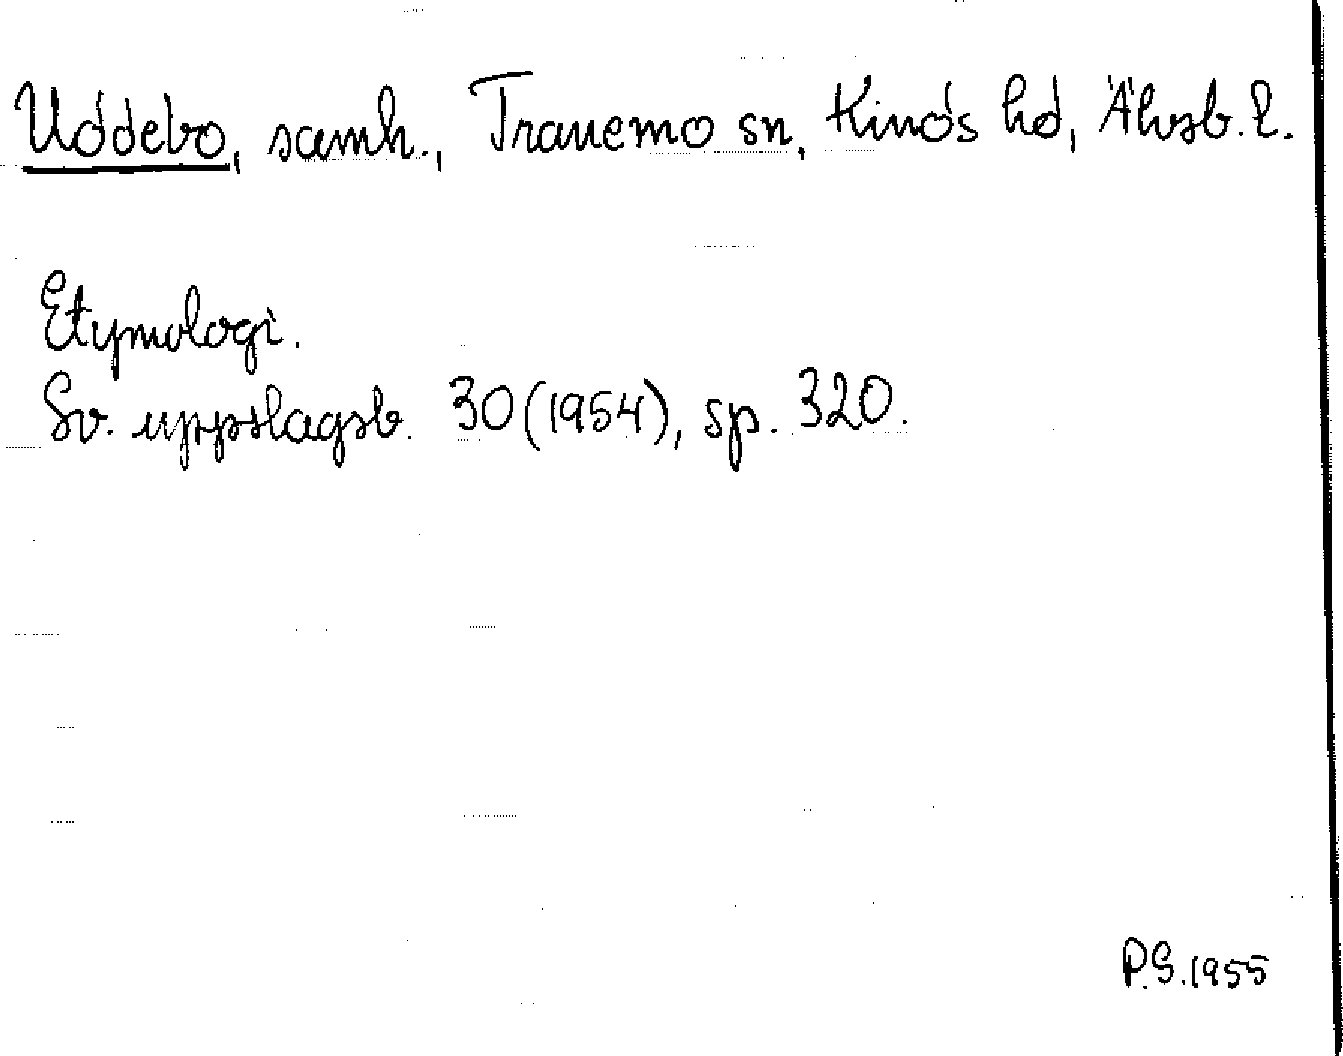 Uddebo, samh., Tranemo sn, Kinds hd, Älvsb. l.
Etymologi.
Sv. uppslagsb. 30 (1954), sp. 320.
P.S. 1955